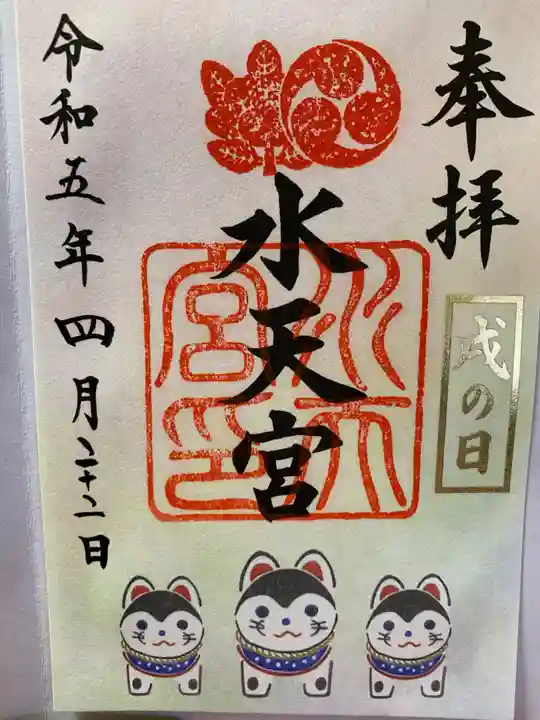 奉拝
戌の日
水天宮
水天宮印
令和五年四月二十二日